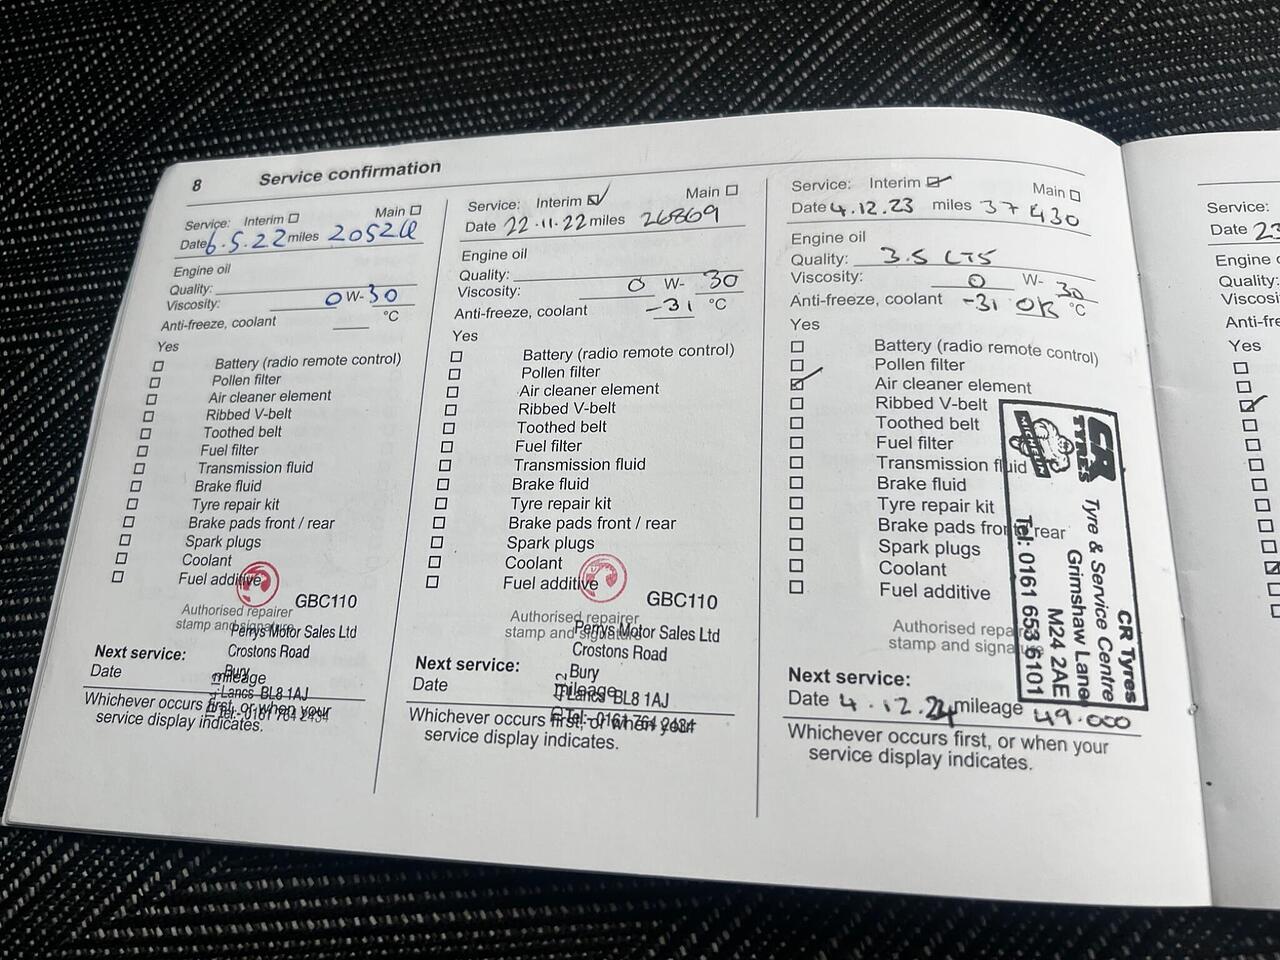 8 Service confirmation
Service: Interim Main
Date 6.5.22 miles 20526
Engine oil
Quality:
Viscosity: 0 W- 30
Anti-freeze, coolant °C
Yes
Battery (radio remote control)
Pollen filter
Air cleaner element
Ribbed V-belt
Toothed belt
Fuel filter
Transmission fluid
Brake fluid
Tyre repair kit
Brake pads front / rear
Spark plugs
Coolant
Fuel additive
GBC110
Authorised repairer
stamp and signature
Perrys Motor Sales Ltd
Crostons Road
Next service:
Bury
Date mileage
Lancs BL8 1AJ
Whichever occurs first, or when your
Tel: 0161 764 2434
service display indicates.
Service: Interim Main
Date 22.11.22 miles 26869
Engine oil
Quality:
Viscosity: 0 W- 30
Anti-freeze, coolant -31 °C
Yes
Battery (radio remote control)
Pollen filter
Air cleaner element
Ribbed V-belt
Toothed belt
Fuel filter
Transmission fluid
Brake fluid
Tyre repair kit
Brake pads front / rear
Spark plugs
Coolant
Fuel additive
GBC110
Authorised repairer
stamp and signature
Perrys Motor Sales Ltd
Crostons Road
Next service:
Bury
Date mileage
Lancs BL8 1AJ
Whichever occurs first, or when your
Tel: 0161 764 2434
service display indicates.
Service: Interim Main
Date 4.12.23 miles 37430
Engine oil
Quality: 3.5 LTS
Viscosity: 0 W- 30
Anti-freeze, coolant -31 OK °C
Yes
Battery (radio remote control)
Pollen filter
Air cleaner element
Ribbed V-belt
Toothed belt
Fuel filter
Transmission fluid
Brake fluid
Tyre repair kit
Brake pads front / rear
Spark plugs
Coolant
Fuel additive
Authorised repairer
stamp and signature
CR TYRES
MICHELIN
CR Tyres
Tyre & Service Centre
Grimshaw Lane
M24 2AE
Tel: 0161 653 6101
Next service:
Date 4.12.24 mileage 49.000
Whichever occurs first, or when your
service display indicates.
Service:
Date 23
Engine
Quality:
Viscosi
Anti-fre
Yes